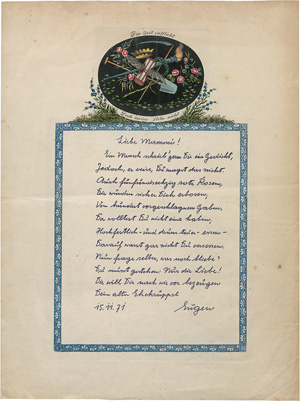 Die Zeit entflieht
doch meine Liebe nicht
Liebe Mamoni!
Ein Mensch schrieb' gern Dir ein Gedicht,
Jedoch, er weis, Du magst das nicht.
Auch fünfundsechzig rote Rosen,
Sie würden sicher Dich erbosen,
Von hundert vorgeschlagnen Gaben,
Da wolltest Du nicht eine haben,
Hochfestlich
Darauf warst gar nicht Du versessen
Nun frage selbst, was noch bliebe?
Du müsst gestehen: Nur die Liebe!
Die will Dir auch wie vor bezeugen
Dein alter Ehekrüppel
Eugen